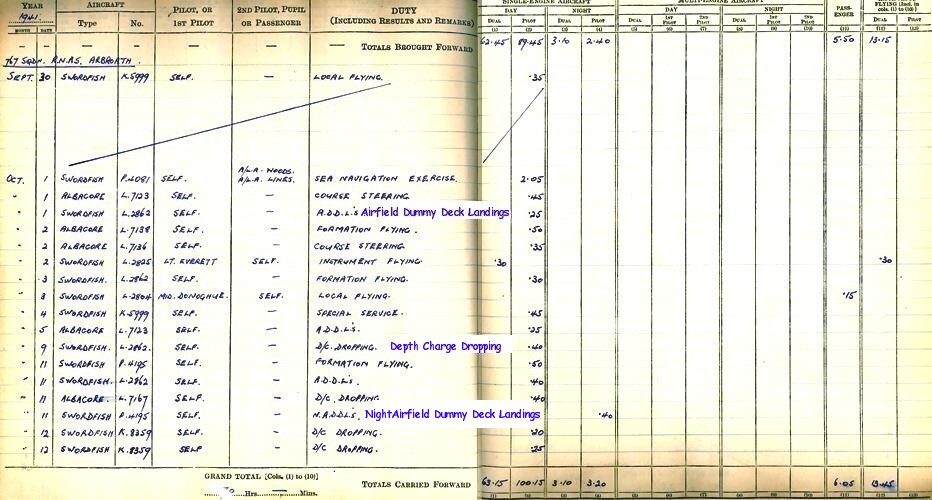 YEAR AIRCRAFT PILOT, OR 2ND PILOT, PUPIL DUTY SINGLE-ENGINE AIRCRAFT MULTI-ENGINE AIRCRAFT PASS- FLYING [Incl. in
1941 Type No. 1ST PILOT OR PASSENGER (INCLUDING RESULTS AND REMARKS) DAY NIGHT DAY NIGHT ENGER cols. (1) to (10)]
MONTH DATE DUAL PILOT DUAL PILOT DUAL 1ST PILOT 2ND PILOT DUAL 1ST PILOT 2ND PILOT DUAL PILOT
(1) (2) (3) (4) (5) (6) (7) (8) (9) (10) (11) (12) (13)
— — — — — — — TOTALS BROUGHT FORWARD 62.45 89.45 3.10 2.40 5.50 13.15
767 SQDN. R.N.A.S. ARBROATH.
SEPT. 30 SWORDFISH K.5999 SELF. — LOCAL FLYING. .35
OCT. 1 SWORDFISH P.4081 SELF. A/L.A. WOODS. A/L.A. LINES. SEA NAVIGATION EXERCISE. 2.05
" 1 ALBACORE L.7123 SELF. — COURSE STEERING. .45
" 1 SWORDFISH L.2862 SELF. — A.D.D.L's Airfield Dummy Deck Landings .25
" 2 ALBACORE L.7138 SELF. — FORMATION FLYING. .50
" 2 ALBACORE L.7136 SELF. — COURSE STEERING. .35
" 2 SWORDFISH L.2825 LT. EVERETT SELF. INSTRUMENT FLYING. .30 .30
" 3 SWORDFISH. L.2862 SELF. — FORMATION FLYING. .30
" 3 SWORDFISH L.2804 MID. DONOGHUE. SELF. LOCAL FLYING. .15
" 4 SWORDFISH K.5999 SELF. — SPECIAL SERVICE. .45
" 5 ALBACORE L.7123 SELF. — A.D.D.L's. .25
" 9 SWORDFISH. L.2862. SELF. — D/C. DROPPING. Depth Charge Dropping .40
" 11 SWORDFISH P.4195 SELF. — FORMATION FLYING. .50
" 11 SWORDFISH. L.2862 SELF. — A.D.D.L's. .40
" 11 ALBACORE. L.7167 SELF. — D/C. DROPPING .40
" 11 SWORDFISH P.4195 SELF. — N.A.DDL'S. NightAirfield Dummy Deck Landings .40
" 12 SWORDFISH K.8359 SELF. — D/C DROPPING. .20
" 12 SWORDFISH K.8359 SELF — D/C DROPPING. .25
GRAND TOTAL [Cols. (1) to (10)]
Hrs. — Mins. TOTALS CARRIED FORWARD 63.15 100.15 3.10 3.20 6.05 13.45
(1) (2) (3) (4) (5) (6) (7) (8) (9) (10) (11) (12) (13)